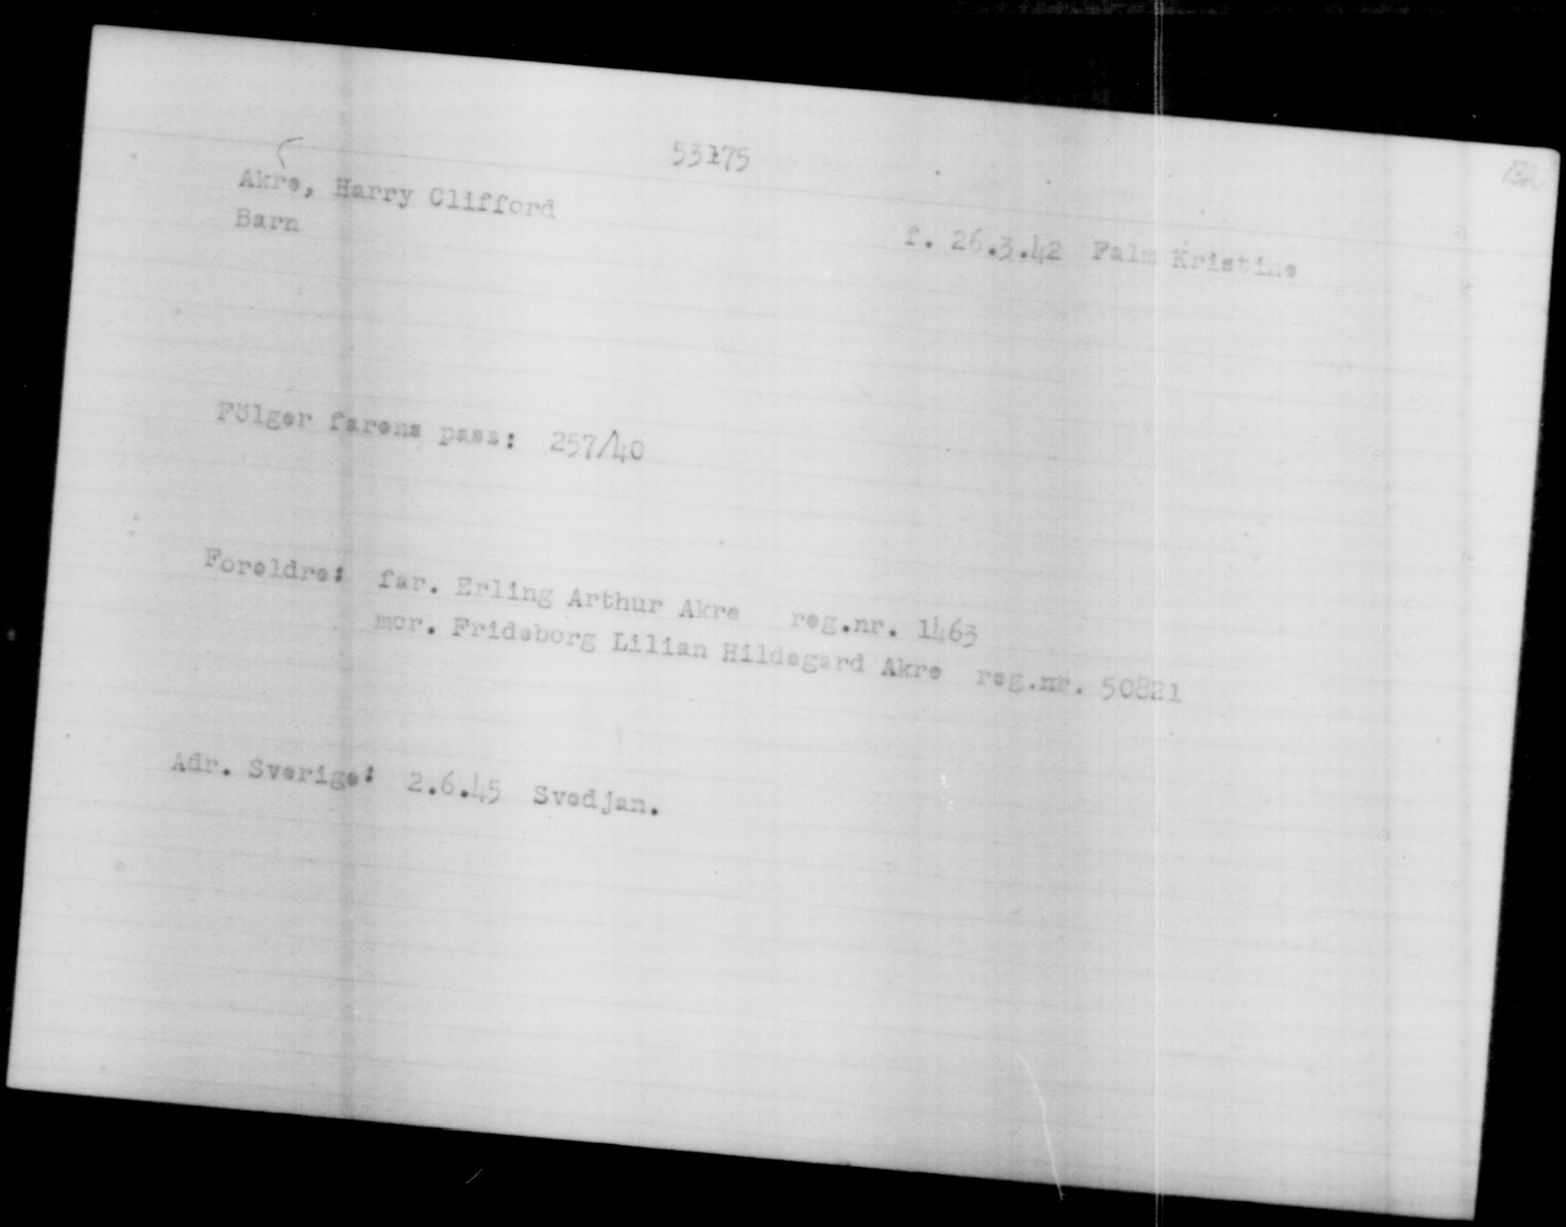 53175
132
Akre, Harry Clifford
Barn
f. 26.3.42 Falm Kristine
Fölger farens pass: 257/40
Foreldre: far. Erling Arthur Akre reg.nr. 1463
mor. Frideborg Lilian Hildegard Akre reg.nr. 50821
Adr. Sverige: 2.6.45 Svedjan.